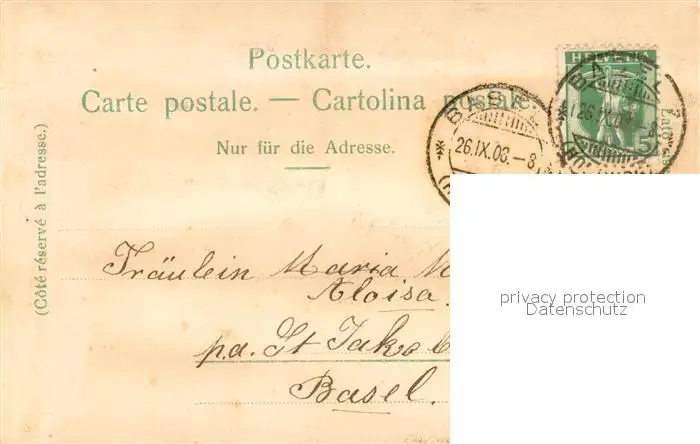 Postkarte.
Carte postale. — Cartolina postale.
Nur für die Adresse.
(Côté réservé à l'adresse.)
HELVETIA
BASEL
26.IX.08.-8
BASEL
26.IX.08.-8
Fräulein Maria M
Aloisa.
p.a. St Jakob
Basel.
privacy protection
Datenschutz